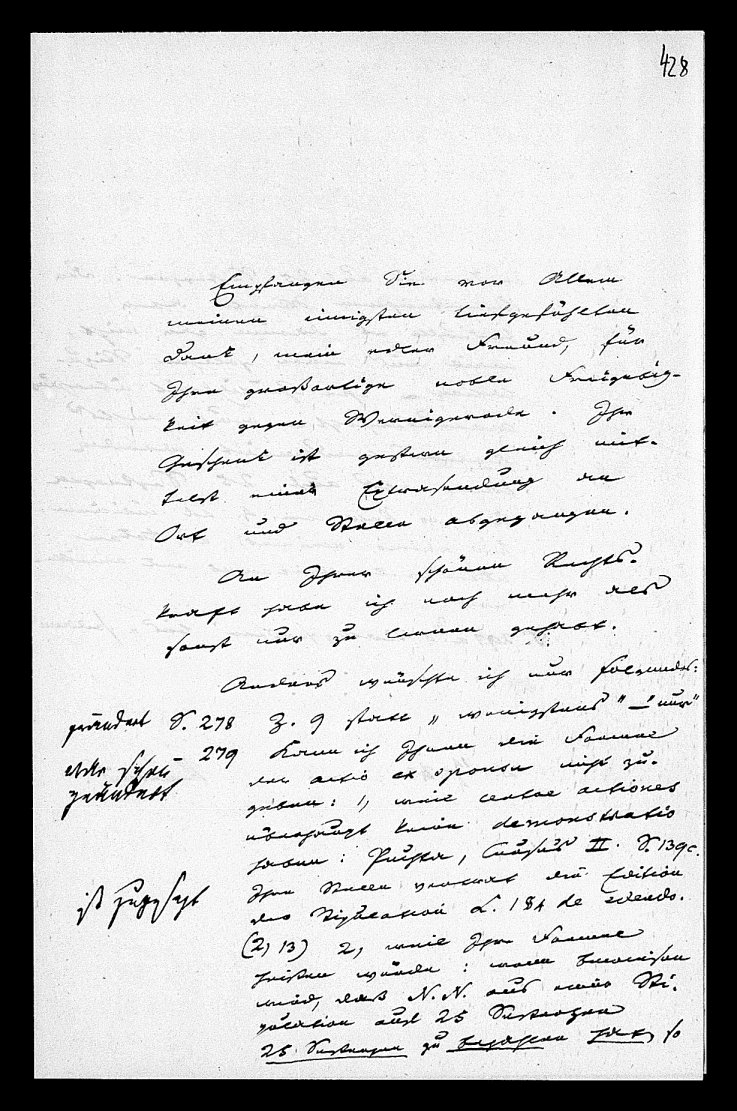 428
Empfangen Sie vor Allem
meinen innigsten tiefgefühlten
Dank, mein edler Freund, für
Ihre großartige noble Freigebig-
keit gegen Wernigerode. Ihr
Geschenk ist gestern gleich mit-
telst einer Extrasendung an
Ort und Stelle abgegangen.
An Ihrer schönen Rechts-
kraft habe ich noch mehr als
sonst nur zu lernen gehabt.
Anders wünschte ich nur folgendes:
geändert S. 278 Z. 9 statt „wenigstens" – „nur"
279 Kann ich Ihnen die Formel
schon
geändert
der actio ex sponsu nicht zu-
geben: 1, weil certae actiones
überhaupt keine demonstratio
haben: Puchta, Cursus II. S. 139c.
ist zugesetzt
Ihre Stelle verlangt die Edition
der Stipulation L. 1 § 4 de edendo.
(2, 13) 2, weil Ihre Formel
heißen würde: wenn bewiesen
wird, daß N. N. aus einer Sti-
pulation auf 25 Sesterzen
25 Sesterzen zu bezahlen hat, so